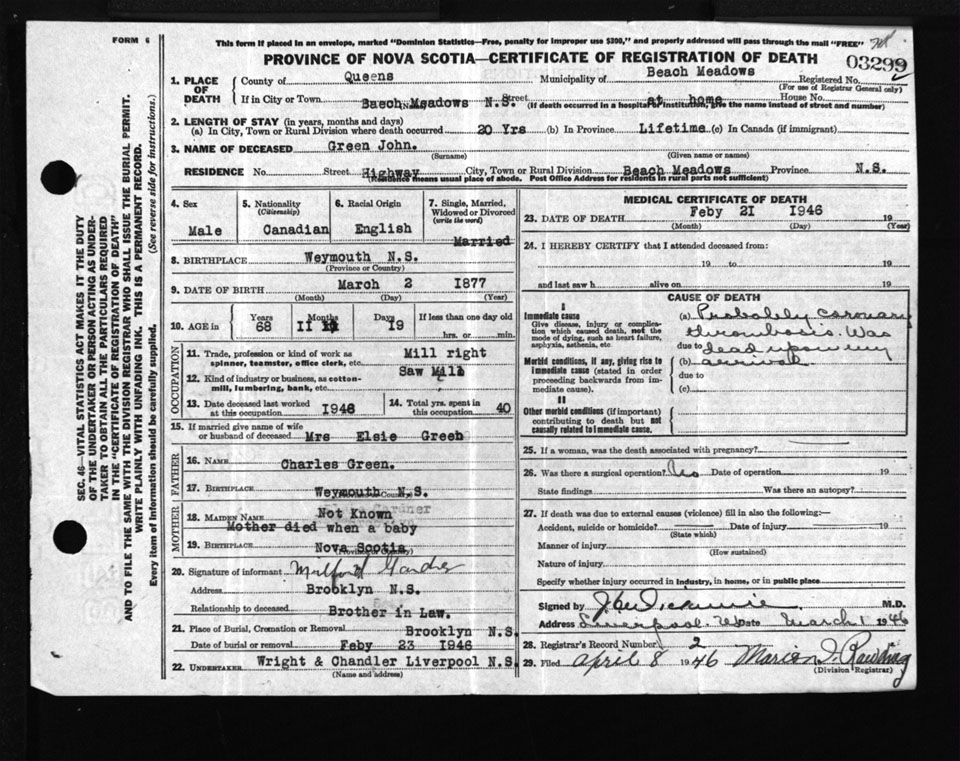 FORM 6
This form if placed in an envelope, marked "Dominion Statistics—Free, penalty for improper use $300," and properly addressed will pass through the mail "FREE"
PROVINCE OF NOVA SCOTIA—CERTIFICATE OF REGISTRATION OF DEATH
03299
1. PLACE OF DEATH
County of Queens Municipality of Beach Meadows Registered No.
(For use of Registrar General only)
If in City or Town Baech Meadows N.S. Street at home House No.
(If death occurred in a hospital or institution, give the name instead of street and number)
2. LENGTH OF STAY (in years, months and days)
(a) In City, Town or Rural Division where death occurred 20 Yrs (b) In Province Lifetime (c) In Canada (if immigrant)
3. NAME OF DECEASED Green John.
(Surname) (Given name or names)
RESIDENCE No. Street Highway City, Town or Rural Division Beach Meadows Province N.S.
(Residence means usual place of abode. Post Office Address for residents in rural parts not sufficient)
4. Sex Male
5. Nationality (Citizenship) Canadian
6. Racial Origin English
7. Single, Married, Widowed or Divorced (write the word) Married
8. BIRTHPLACE Weymouth N.S.
(Province or Country)
9. DATE OF BIRTH March 2 1877
(Month) (Day) (Year)
10. AGE in Years 68 Months 11 Days 19 If less than one day old hrs. or min.
OCCUPATION
11. Trade, profession or kind of work as spinner, teamster, office clerk, etc. Mill right
12. Kind of industry or business, as cotton-mill, lumbering, bank, etc. Saw Mill
13. Date deceased last worked at this occupation 1946
14. Total yrs. spent in this occupation 40
15. If married give name of wife or husband of deceased Mrs Elsie Green
FATHER
16. NAME Charles Green.
17. BIRTHPLACE Weymouth N.S.
MOTHER
18. MAIDEN NAME Not Known
Mother died when a baby
19. BIRTHPLACE Nova Scotia
(Province or Country)
20. Signature of informant Milford Gardner
Address Brooklyn N.S.
Relationship to deceased Brother in Law.
21. Place of Burial, Cremation or Removal Brooklyn N.S.
Date of burial or removal Feby 23 1946
22. UNDERTAKER Wright & Chandler Liverpool N.S.
(Name and address)
MEDICAL CERTIFICATE OF DEATH
23. DATE OF DEATH Feby 21 1946 19
(Month) (Day) (Year)
24. I HEREBY CERTIFY that I attended deceased from:
19 to 19
and last saw h alive on 19
CAUSE OF DEATH
I
Immediate cause
Give disease, injury or complication which caused death, not the mode of dying, such as heart failure, asphyxia, asthenia, etc.
(a) Probably coronary
thrombosis. Was
due to dead upon my
Morbid conditions, if any, giving rise to immediate cause (stated in order proceeding backwards from immediate cause).
(b) arrival
due to
(c)
II
Other morbid conditions (if important) contributing to death but not causally related to immediate cause.
25. If a woman, was the death associated with pregnancy?
26. Was there a surgical operation? No Date of operation 19
State findings Was there an autopsy?
27. If death was due to external causes (violence) fill in also the following:—
Accident, suicide or homicide? Date of injury 19
(State which)
Manner of injury
(How sustained)
Nature of injury
Specify whether injury occurred in industry, in home, or in public place
Signed by M.D.
Address Liverpool. March 1 1946
28. Registrar's Record Number 2
29. Filed April 8 1946 Marion
(Division Registrar)
SEC. 46—VITAL STATISTICS ACT MAKES IT THE DUTY
OF THE UNDERTAKER OR PERSON ACTING AS UNDER-
TAKER TO OBTAIN ALL THE PARTICULARS REQUIRED
IN THE "CERTIFICATE OF REGISTRATION OF DEATH"
AND TO FILE THE SAME WITH THE DIVISION REGISTRAR WHO SHALL ISSUE THE BURIAL PERMIT.
WRITE PLAINLY WITH UNFADING INK. THIS IS A PERMANENT RECORD.
Every item of information should be carefully supplied. (See reverse side for instructions.)